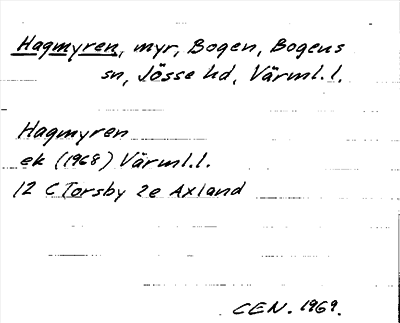 Hagmyren, myr, Bogen, Bogens
sn, Jösse hd, Värml. l.
Hagmyren
ek (1968) Värml. l.
12 C Torsby 2e Axland
CEN. 1969.